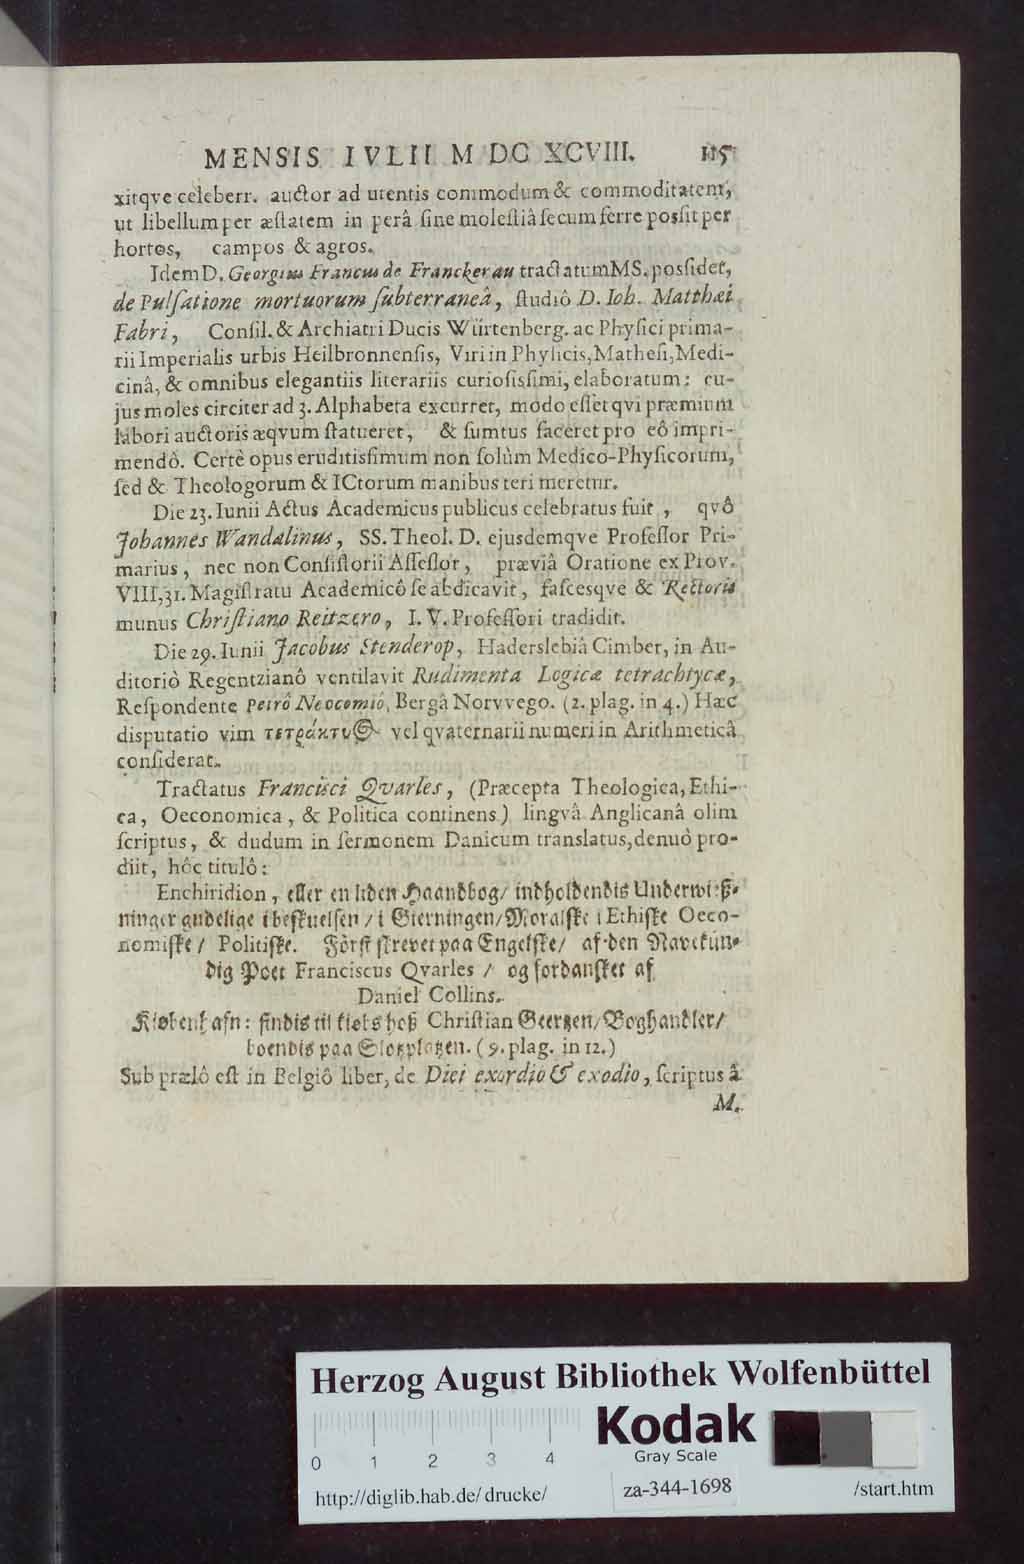 MENSIS IVLII M DC XCVIII.
xitqve celeberr. auctor ad utentis commodum & commoditatem,
ut libellum per æſtatem in perâ ſine moleſtiâ ſecum ferre poſſit per
hortos, campos & agros.
Idem D. Georgius Francus de Franckenau tractatum MS. posſidet,
de Pulſatione mortuorum ſubterraneâ, ſtudiô D. Ioh. Matthæi
Fabri, Conſil. & Archiatri Ducis Würtenberg. ac Phyſici prima-
rii Imperialis urbis Heilbronnenſis, Viri in Phyſicis, Matheſi, Medi-
cinâ, & omnibus elegantiis literariis curioſisſimi, elaboratum: cu-
jus moles circiter ad 3. Alphabeta excurret, modo eſſet qvi præmium
labori auctoris æqvum ſtatueret, & ſumtus faceret pro eô impri-
mendô. Certè opus eruditisſimum non ſolùm Medico-Phyſicorum,
ſed & Theologorum & ICtorum manibus teri meretur.
Die 23. Iunii Actus Academicus publicus celebratus fuit, qvô
Johannes Wandalinus, SS. Theol. D. ejusdemqve Profeſſor Pri-
marius, nec non Conſiſtorii Aſſeſſor, præviâ Oratione ex Prov.
VIII, 31. Magiſtratu Academicô ſe abdicavit, faſcesqve & Rectoris
munus Chriſtiano Reitzero, I. V. Profeſſori tradidit.
Die 29. Iunii Jacobus Stenderop, Haderslebiâ Cimber, in Au-
ditoriô Regentzianô ventilavit Rudimenta Logicæ tetrachtycæ,
Reſpondente Petrô Neocomiô, Bergâ Norvvego. (2. plag. in 4.) Hæc
disputatio vim τετράκτυος vel qvaternarii numeri in Arithmeticâ
conſiderat.
Tractatus Franciſci Qvarles, (Præcepta Theologica, Ethi-
ca, Oeconomica, & Politica continens) lingvâ Anglicanâ olim
ſcriptus, & dudum in ſermonem Danicum translatus, denuô pro-
diit, hôc titulô:
Enchiridion, eller en liden Haandbog/ indholdendis Underwiſß-
ninger gudelige i beſkuelſen / i Gierningen/ Moralſke i Ethiſke Oeco-
nomiſke / Politiſke. Förſt ſkrevet paa Engelſke/ af den Navnkün-
dig Poet Franciscus Qvarles / og fordanſket af
Daniel Collins.
Kiøbenhafn: findis til kiøbs hoß Chriſtian Geertzen/ Boghandler/
boendis paa Slotzplatzen. (9. plag. in 12.)
Sub prælô eſt in Belgiô liber, de Diei exordio & exodio, ſcriptus â
M.
Herzog August Bibliothek Wolfenbüttel
Kodak
Gray Scale
0 1 2 3 4
http://diglib.hab.de/drucke/ za-344-1698 /start.htm